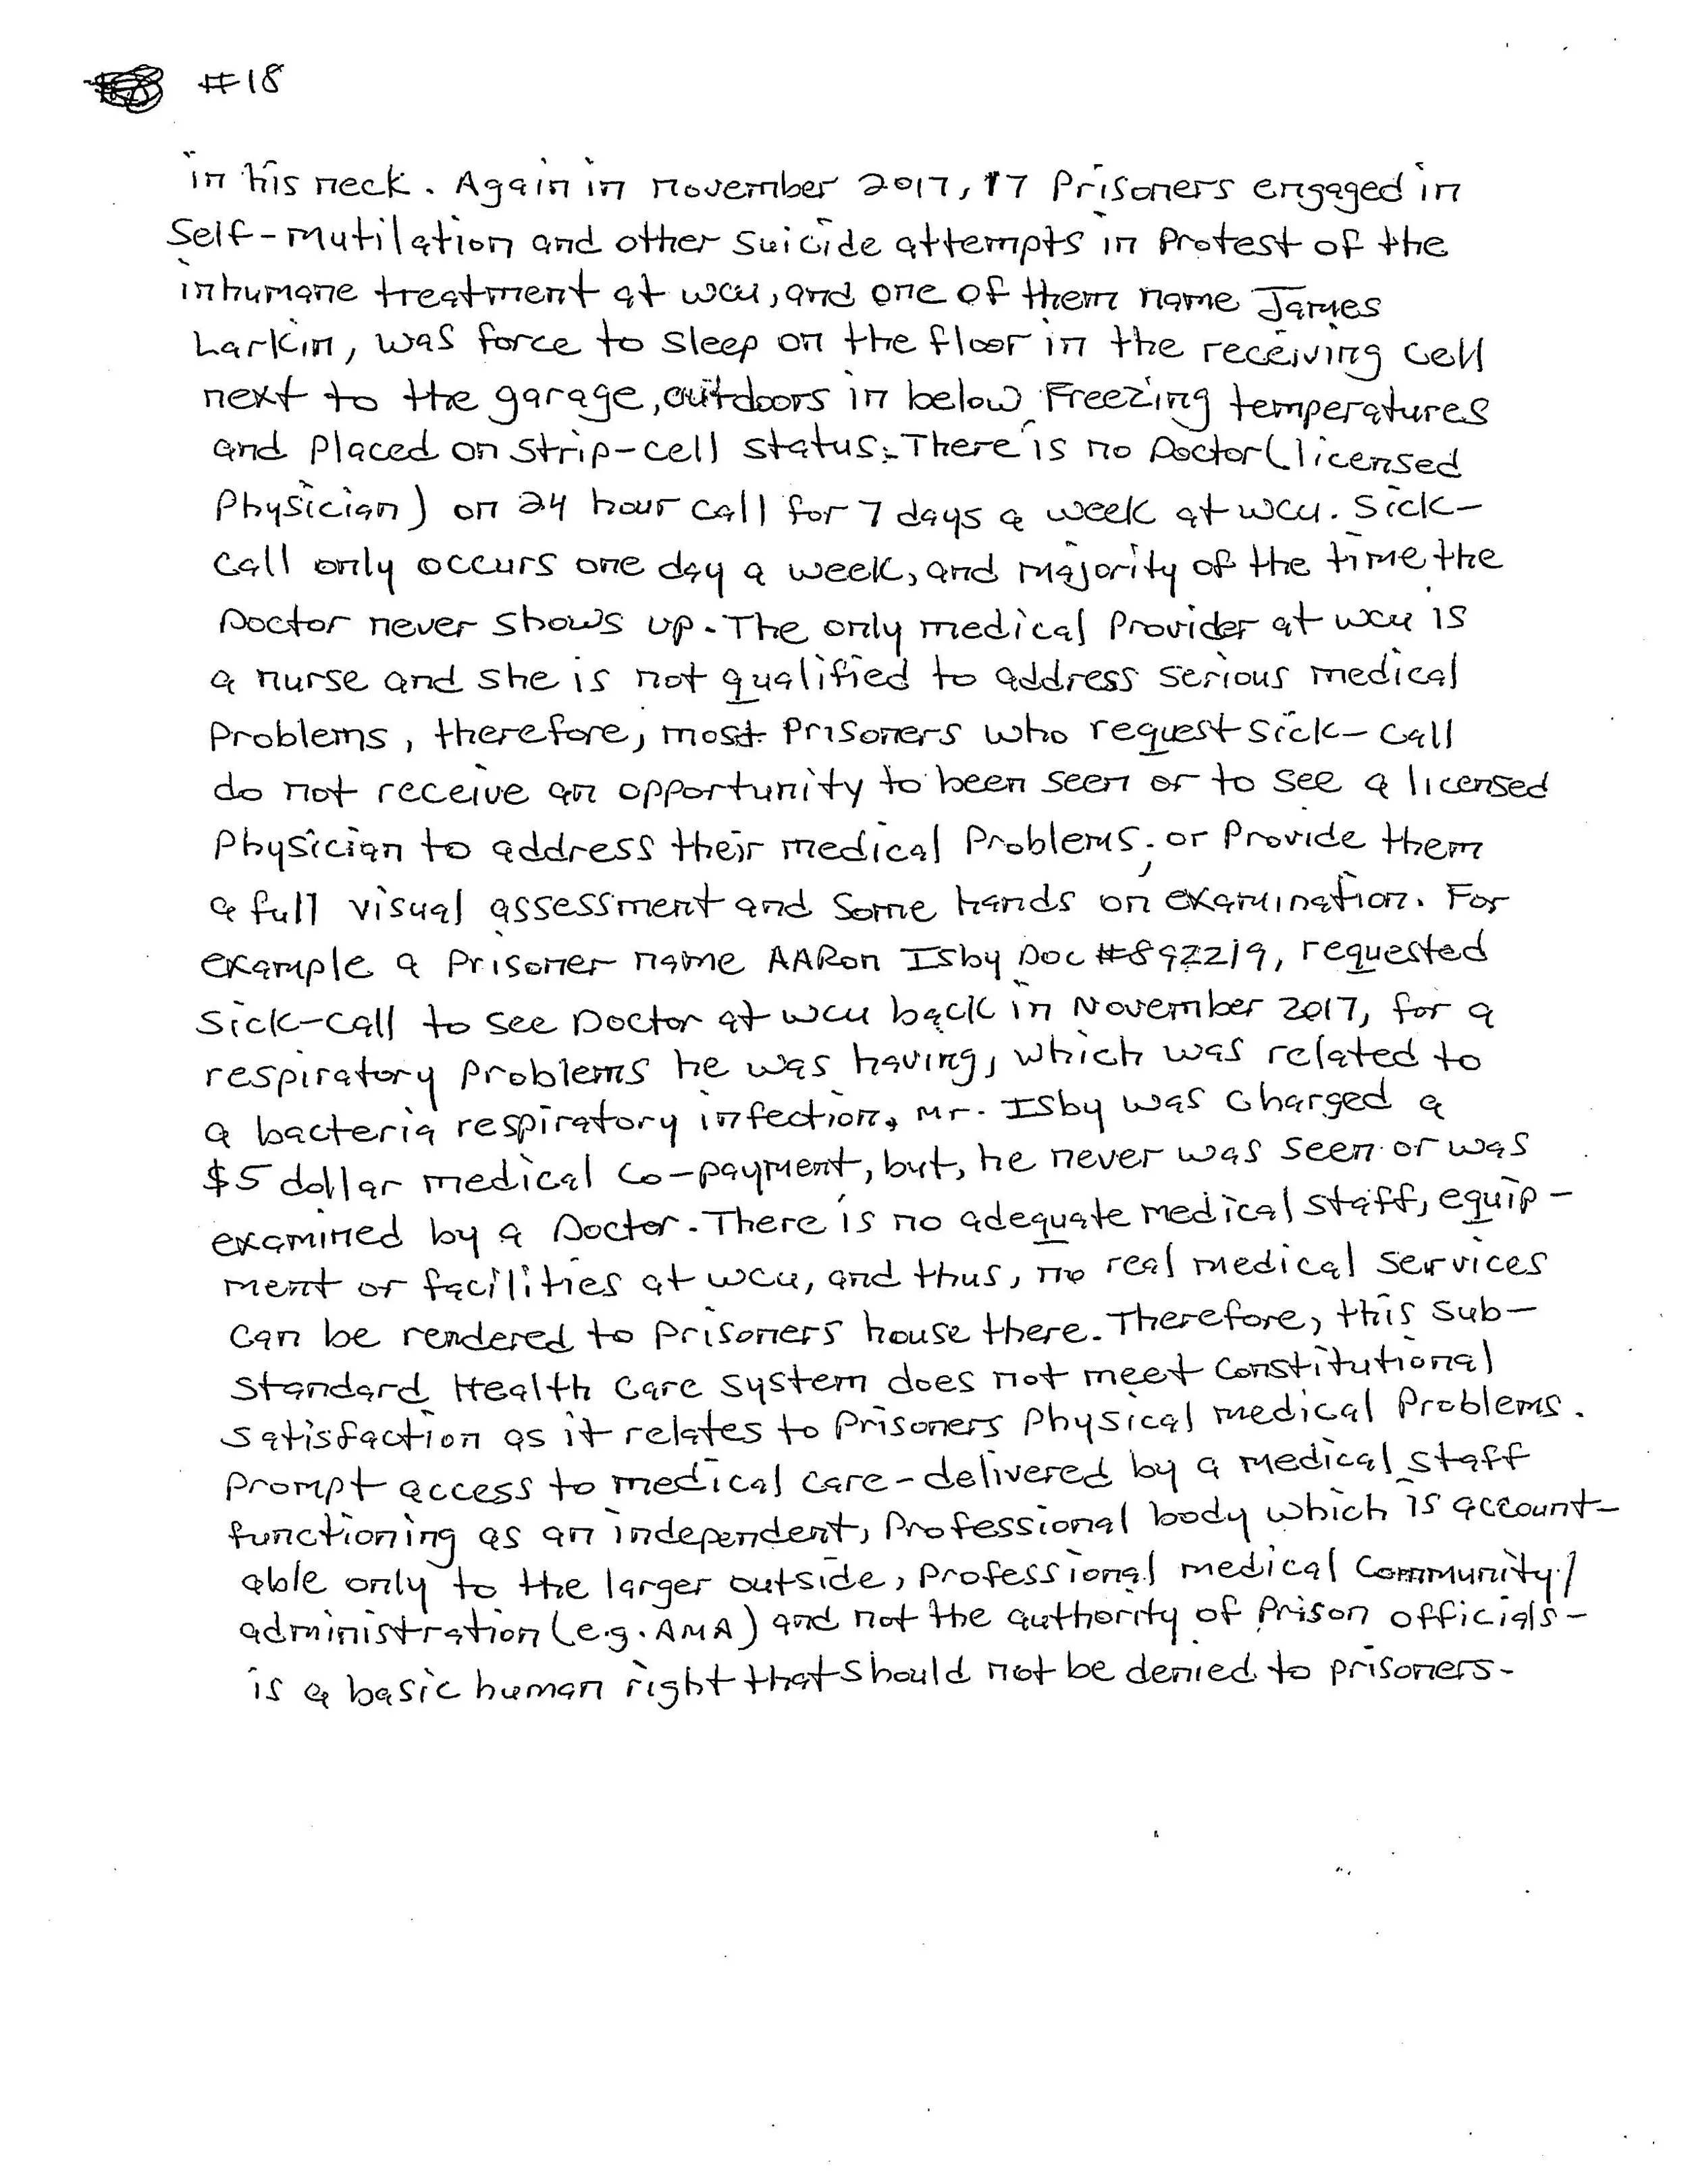 #18
in his neck. Again in november 2017, 17 Prisoners engaged in
Self-mutilation and other suicide attempts in Protest of the
inhumane treatment at wcu, and one of them name James
Larkin, was force to sleep on the floor in the receiving cell
next to the garage, outdoors in below Freezing temperatures
and Placed on strip-cell status. There is no Doctor (licensed
Physician) on 24 hour call for 7 days a week at wcu. Sick-
call only occurs one day a week, and majority of the time the
Doctor never shows up. The only medical Provider at wcu is
a nurse and she is not qualified to address serious medical
Problems, therefore, most Prisoners who request sick-call
do not receive an opportunity to been seen or to see a licensed
Physician to address their medical Problems; or Provide them
a full visual assessment and some hands on examination. For
example a Prisoner name AARon Isby Doc #892219, requested
Sick-call to see Doctor at wcu back in November 2017, for a
respiratory Problems he was having, which was related to
a bacteria respiratory infection, Mr. Isby was charged a
$5 dollar medical co-payment, but, he never was seen or was
examined by a Doctor. There is no adequate medical staff, equip-
ment or facilities at wcu, and thus, no real medical services
can be rendered to prisoners house there. Therefore, this sub-
standard Health Care system does not meet Constitutional
satisfaction as it relates to Prisoners Physical medical Problems.
Prompt access to medical care-delivered by a medical staff
functioning as an independent, Professional body which is account-
able only to the larger outside, Professional medical Community/
administration (e.g. AMA) and not the authority of Prison officials-
is a basic human right that should not be denied to prisoners-